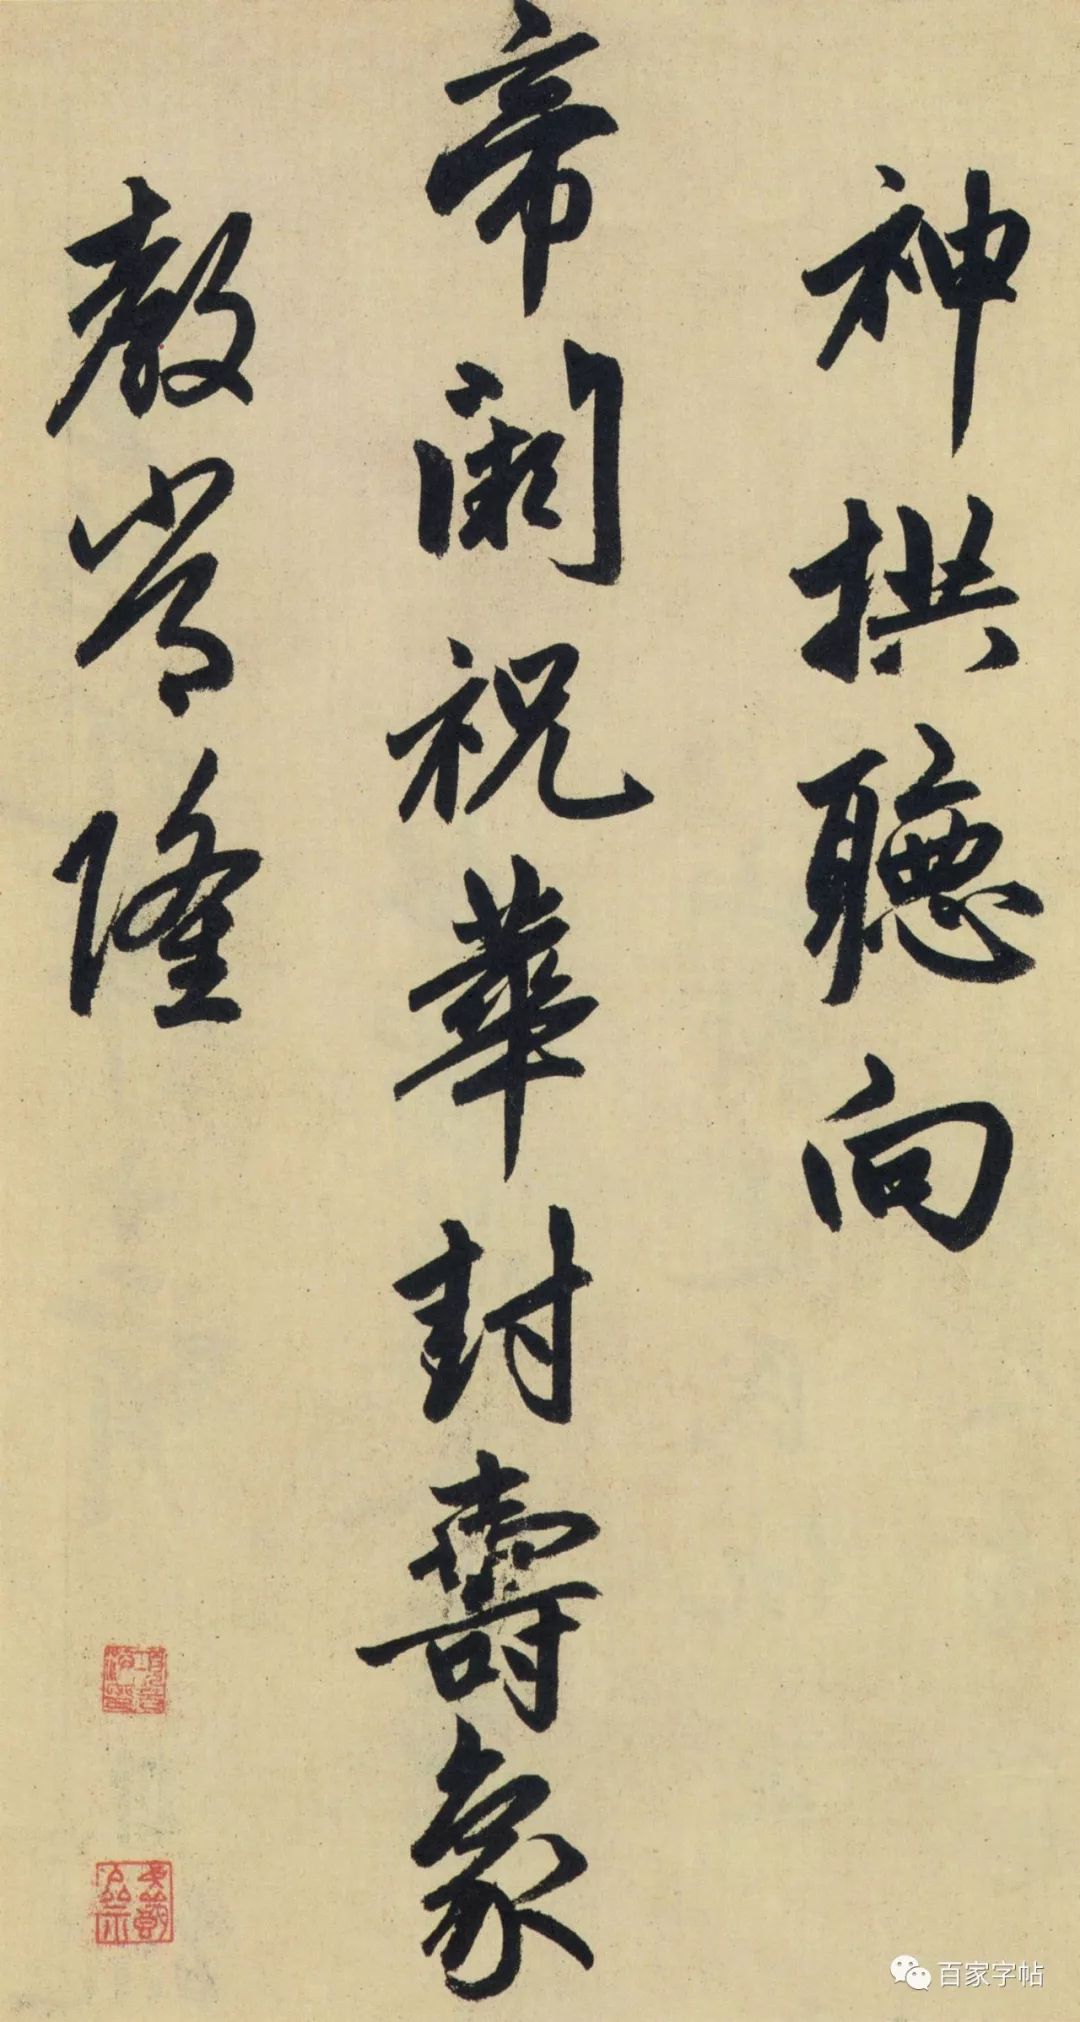 神拱聽向
帝闕祝華封壽象
教常隆
百家字帖